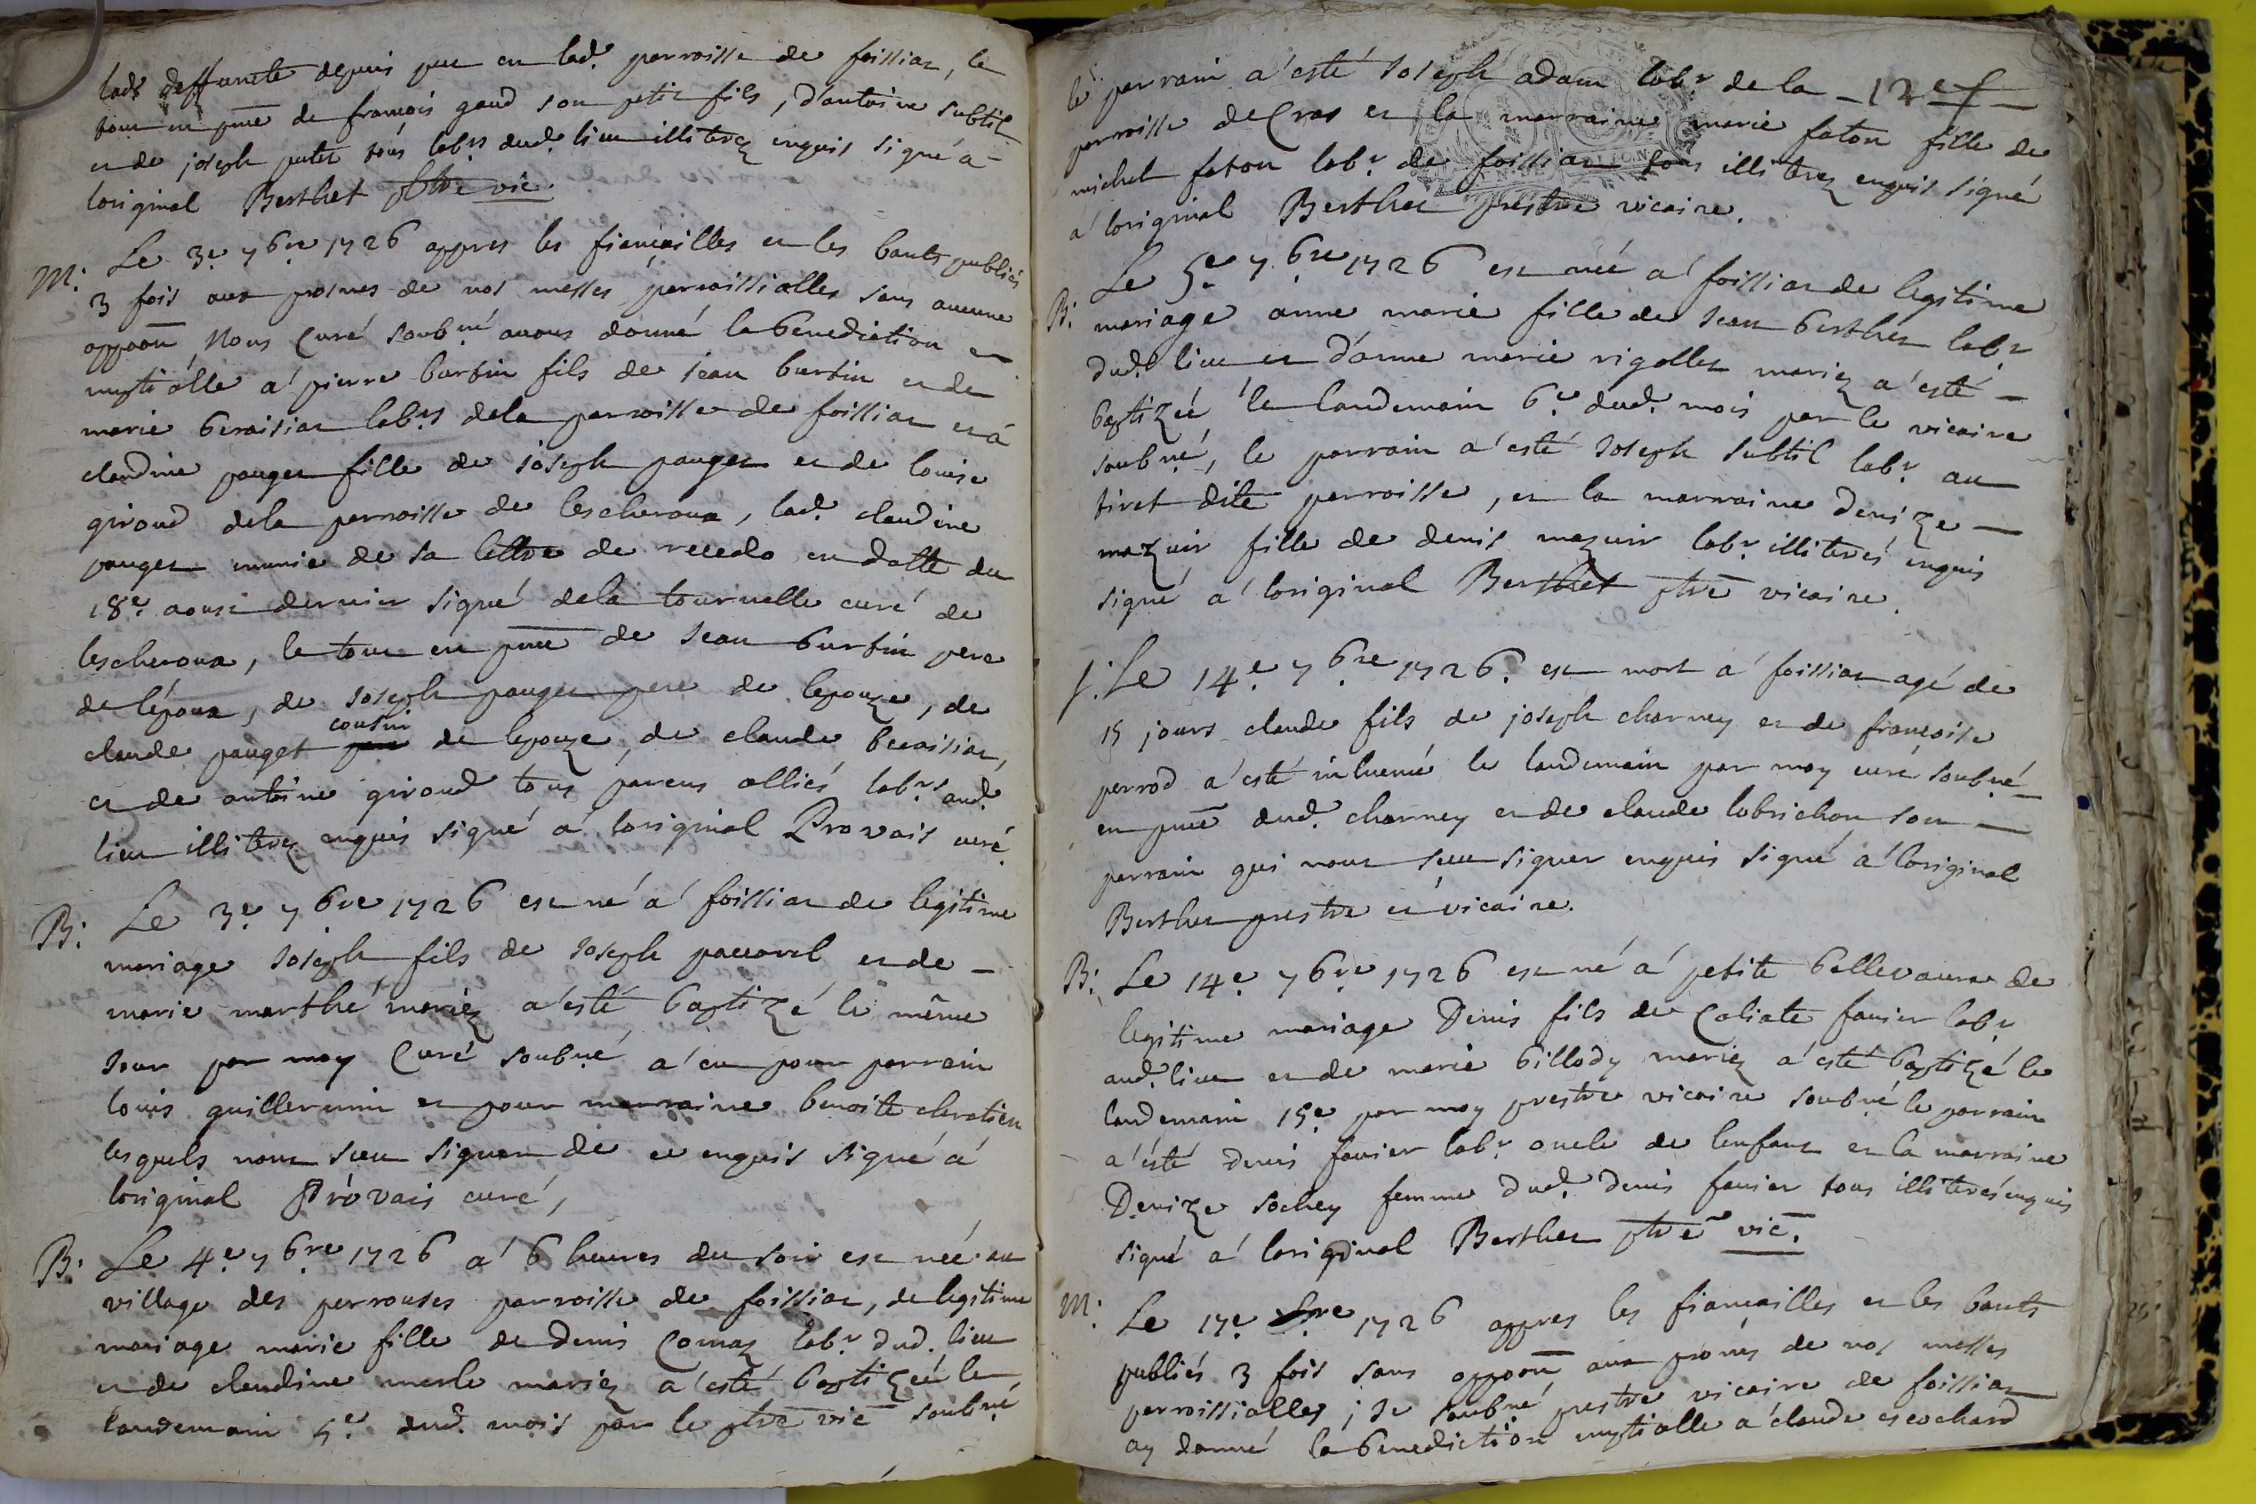 lad.e deffuncte depuis peu en lad. parroisse de foissiar, le
tout en pnce de francois gaud son petit fils, d'antoine subtil
et de joseph putet tous lab.rs dud. lieu illiterez enquis signé a
loriginal Berthet ptre vic.
M: Le 3.e 7bre 1726 appres les fiencailles et les bants publiés
3 fois aux prosnes de nos messes parroissialles sans aucune
oppoon Nous Curé soub.né avons donné la benediction
nuptialle a pierre burtin fils de jean burtin et de
marie beraisiar lab.rs de la parroisse de foissiar et a
claudine pauget fille de joseph pauget et de louise
giroud de la parroisse de lescheroux, lad. claudine
pauget munie de sa lettre de recedo en datte du
18.e aoust dernier signé dela tournelle curé de
lescheroux, le tout en pnce de jean burtin pere
de l'époux, de joseph pauget pere de lepouze, de
cousin
claude pauget pere de lepouze, de claude beraisiar,
et de antoine giroud tous parens alliés lab.rs aud.
lieu illiterez enquis signé a loriginal Provais curé.
B: Le 3.e 7bre 1726 est né a foissiar de legitime
mariage joseph fils de joseph paccoud et de
marie marthe mariez a esté baptizé le même
jour par moy Curé soubné a eu pour parrain
louis guillermin et pour marraine benoite chretien
lesquels nont sceu signer de ce enquis signé a
loriginal Provais curé,
B: Le 4.e 7bre 1726 a 6 heures du soir est née au
village des perrouses parroisse de foissiar, de legitime
mariage marie fille de denis Comaz lab.r dud. lieu
et de claudine merle mariez a esté baptizée le
landemain 5.e dud. mois par le ptre vic soubné
le parrain a esté joseph adam lab.r de la -12e f-
parroisse de Cras et la marraine marie faton fille de
michel faton lab.r de foissiar tous illiterez enquis signé
a loriginal Berthet prestre vicaire.
B: Le 5.e 7bre 1726 est née a foissiar de legitime
mariage anne marie fille de jean berthet lab.r
dud. lieu et d'anne marie rigollet mariez a esté
baptizée le landemain 6.e dud. mois par le vicaire
soubné, le parrain a esté joseph subtil lab.r au
tiret dite parroisse, et la marraine denize
mazuir fille de denis mazuir lab.r illiterés enquis
signé a loriginal Berthet ptre vicaire.
f. Le 14.e 7bre 1726. est mort a foissiar agé de
15 jours claude fils de joseph charney et de francoise
perrod a esté inhumé le landemain par moy curé soubné
en pnce dud. charney et de claude lobrichon son
parrain qui nont sceu signer enquis signé a loriginal
Berthet prestre et vicaire.
B: Le 14.e 7bre 1726 est né a petite bellevaure de
legitime mariage Denis fils de Coliate favier lab.r
aud. lieu et de marie billody mariez a esté baptizé le
landemain 15e par moy prestre vicaire soubné le parrain
a esté denis favier lab.r oncle de lenfant et la marraine
Denize sochey femme dud. denis favier tous illiterés enquis
signé a loriginal Berthet ptre vic.
M: Le 17.e 7bre 1726 appres les fiancailles et les bants
publiés 3 fois sans oppoon aux prones de nos messes
parroissialles, je soubné prestre vicaire de foissiar
ay donné la benediction nuptialle a claude escochard